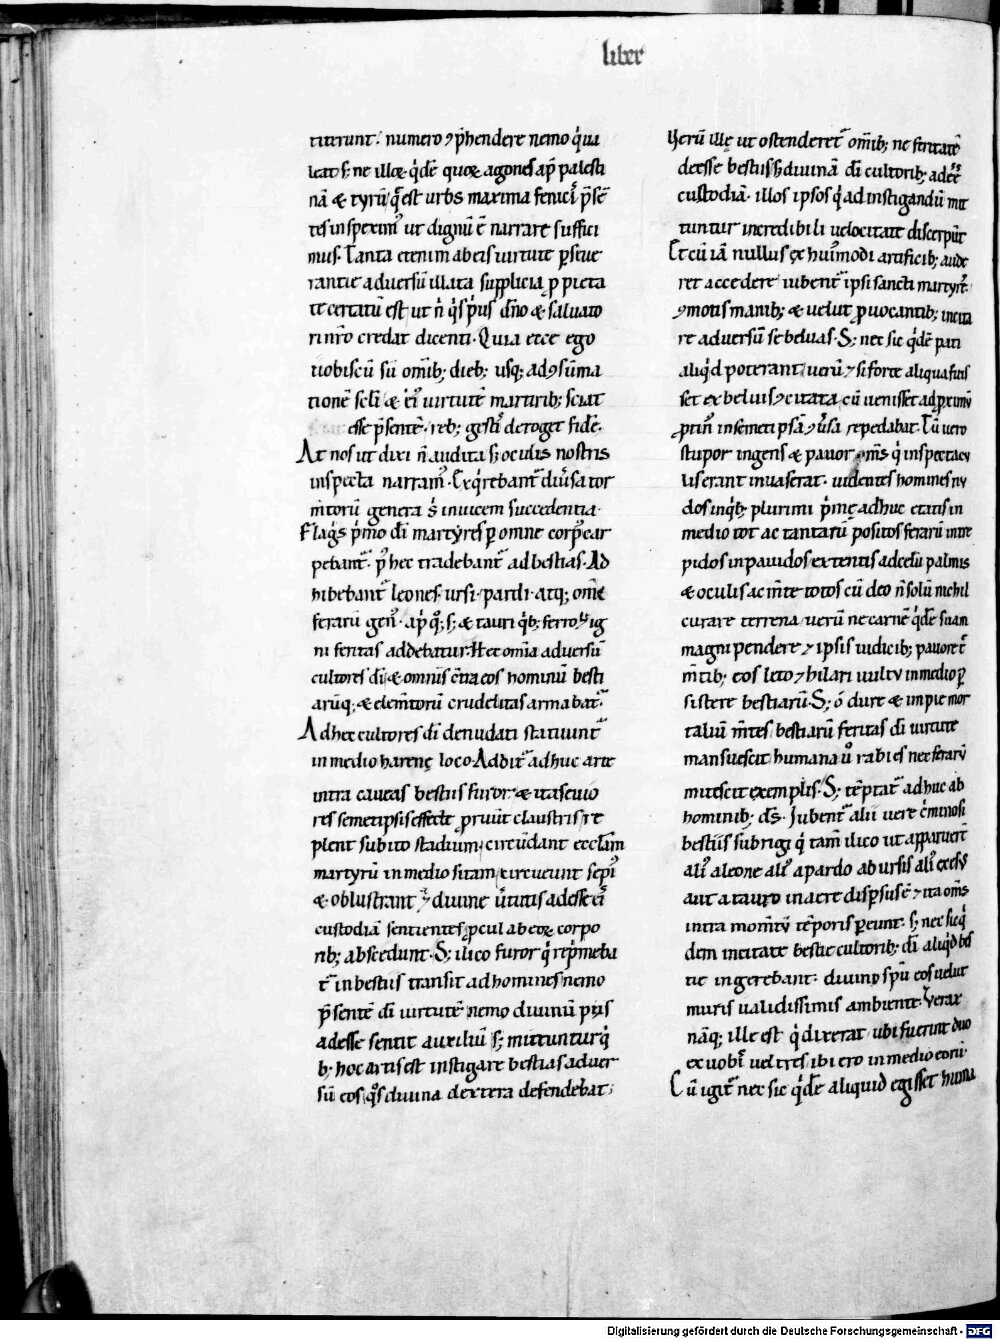 liber
titerunt. numero ꝯp̄hendere nemo q̇ua
leat s; ne illoꝝ q̇dē quoꝝ agones ap̄ palesti
nā & tyrū q̄ est urbs maxima fenicī p̄sē
tes inspeximꝰ ut dignū ē narrare suffici
mus. Tanta etenim ab eis uirtute p̄seue
rantie aduersū illata supplicia ꝓ pieta
te certatū est ut ñ q̇s p̄us dño & saluato
ri nr̄o credat dicenti. Quia ecce ego
uobiscū sū omib; dieb; usq; ad ꝯsūma
tionē scl̄i & ei᷒ uirtutē martirib; sciat
esse p̄sentē. reb; gestī deroget fidē.
At nos ut dixi ñ audita s; oculis nostris
inspecta narramꝰ. Exq̇rebant᷑ diūsa tor
m̄torū genera s᷒ inuicem succedentia.
Flag᷒s p̄mo dī martyres ꝑ omne corpꝰ ear
pebant᷑. p᷒ hec tradebant᷑ ad bestias. Ad
hibebant᷑ leones. ursi. pardi. atq; om̄e
ferarū genꝰ. ap̄ q᷒; s; & tauri q̇b; ferro ł ig
ni feritas addebatur. Hec om̄ia aduersū
cultores dī; & omnis ɔ̄tra eos hominū besti
arūq; & elem̄torū crudelitas armabat᷑.
Ad hec cultores dī denudati statiunt᷑
in medio harenę loco. Addit᷑ adhuc arte
intra caueas bestiis furor & ita seuio
res semetipsis effecte ꝓruūt claustris re
plent subito stadium. circūdant eccl̄am
martyrū in medio sitam. circueunt sepꝰ
& oblustrant & diuine ūtutis adesse eī
custodiā sentientes ꝓcul ab eoꝝ corpo
rib; abscedunt. S; ilico furor q̇ rep̄meba
t᷑ in bestiis transit ad homines nemo
p̄sentē dī uirtutē nemo diuinū p̄us
adesse sentit auxiliū s; mittuntur q̇
b; hoc artis est instigare bestias aduer
sū eos q᷒s diuina dextera defendebat.
Verū illę ut ostenderet᷑ om̄ib; ne feritatē
deesse bestiis s; diuinā dī cultorib; adeē
custodiā. illos ipsos q̇ ad instigandū mit
tuntur incredibili uelocitate discerpūt
Et cū iā nullus ex hui᷒modi artificib; aude
ret accedere iubent᷑ ipsi sancti martyres
ꝯmotis manib; & uelut ꝓuocantib; incita
re aduersū se beluas. S; nec sic q̇dē pati
aliq̇d poterant uerū & si forte aliqua fuis
set ex beluis ꝯcitata cū uenisset ad ꝓximū
ꝓtin᷒ in semetipsā ꝯuersa repedabat. Tū uero
stupor ingens & pauor om̄s q̇ inspectacu
lis erant inuaserat. uidentes homines nu
dos in q̇b; plurimi p̄me adhuc etatis in
medio tot ac tantarū positos ferarū intre
pidos inpauidos extentis ad celū palmis
& oculis ac m̄te totos cū deo ñ solū nichil
curare terrena uerū ne carnē q̇dē suam
magni pendere & ipsis iudicib; pauore t᷑
m̄tib; eos leto & hilari uultu in medio ꝑ
sistere bestiarū. S; o dure & impie mor
taliū m̄tes bestiarū feritas dī uirtute
mansuescit humana ū rabies nec ferarū
mitescit exemplis. S; tēptat᷑ adhuc ab
hominib; ds. Iubent᷑ alii uere c᷑minosi
bestiis subrigi q̇ tam̄ ilico ut apparuert̄
ali᷒ a leone ali᷒ a pardo ab ursis ali᷒ excesū
aut a tauro in aere disp̄sus ē & ita om̄s
intra mom̄tū tēporis ꝑeunt. s; nec sic q̇
dem incitate bestie cultorib; dī aliq̇d les
tie ingerebant. diuino sp̄u eos uelut
muris ualidissimis ambiente. Verax
nāq; ille est q̇ dixerat ubi fuerint duo
ex uobī uel tres ibi ero in medio eorū.
Cū igit᷑ nec sic q̇dē aliquid egisset huma
Digitalisierung gefördert durch die Deutsche Forschungsgemeinschaft - DFG